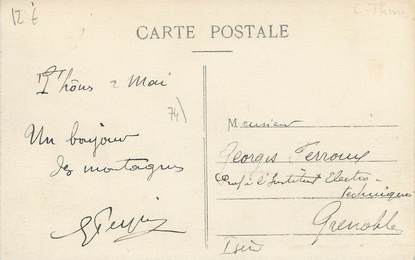 12 €
CARTE POSTALE
Thônes 2 Mai
74
Un bonjour
des montagnes
Monsieur
Georges Ferroux
Prof. à l'Institut Electro-
technique
Grenoble
Isère